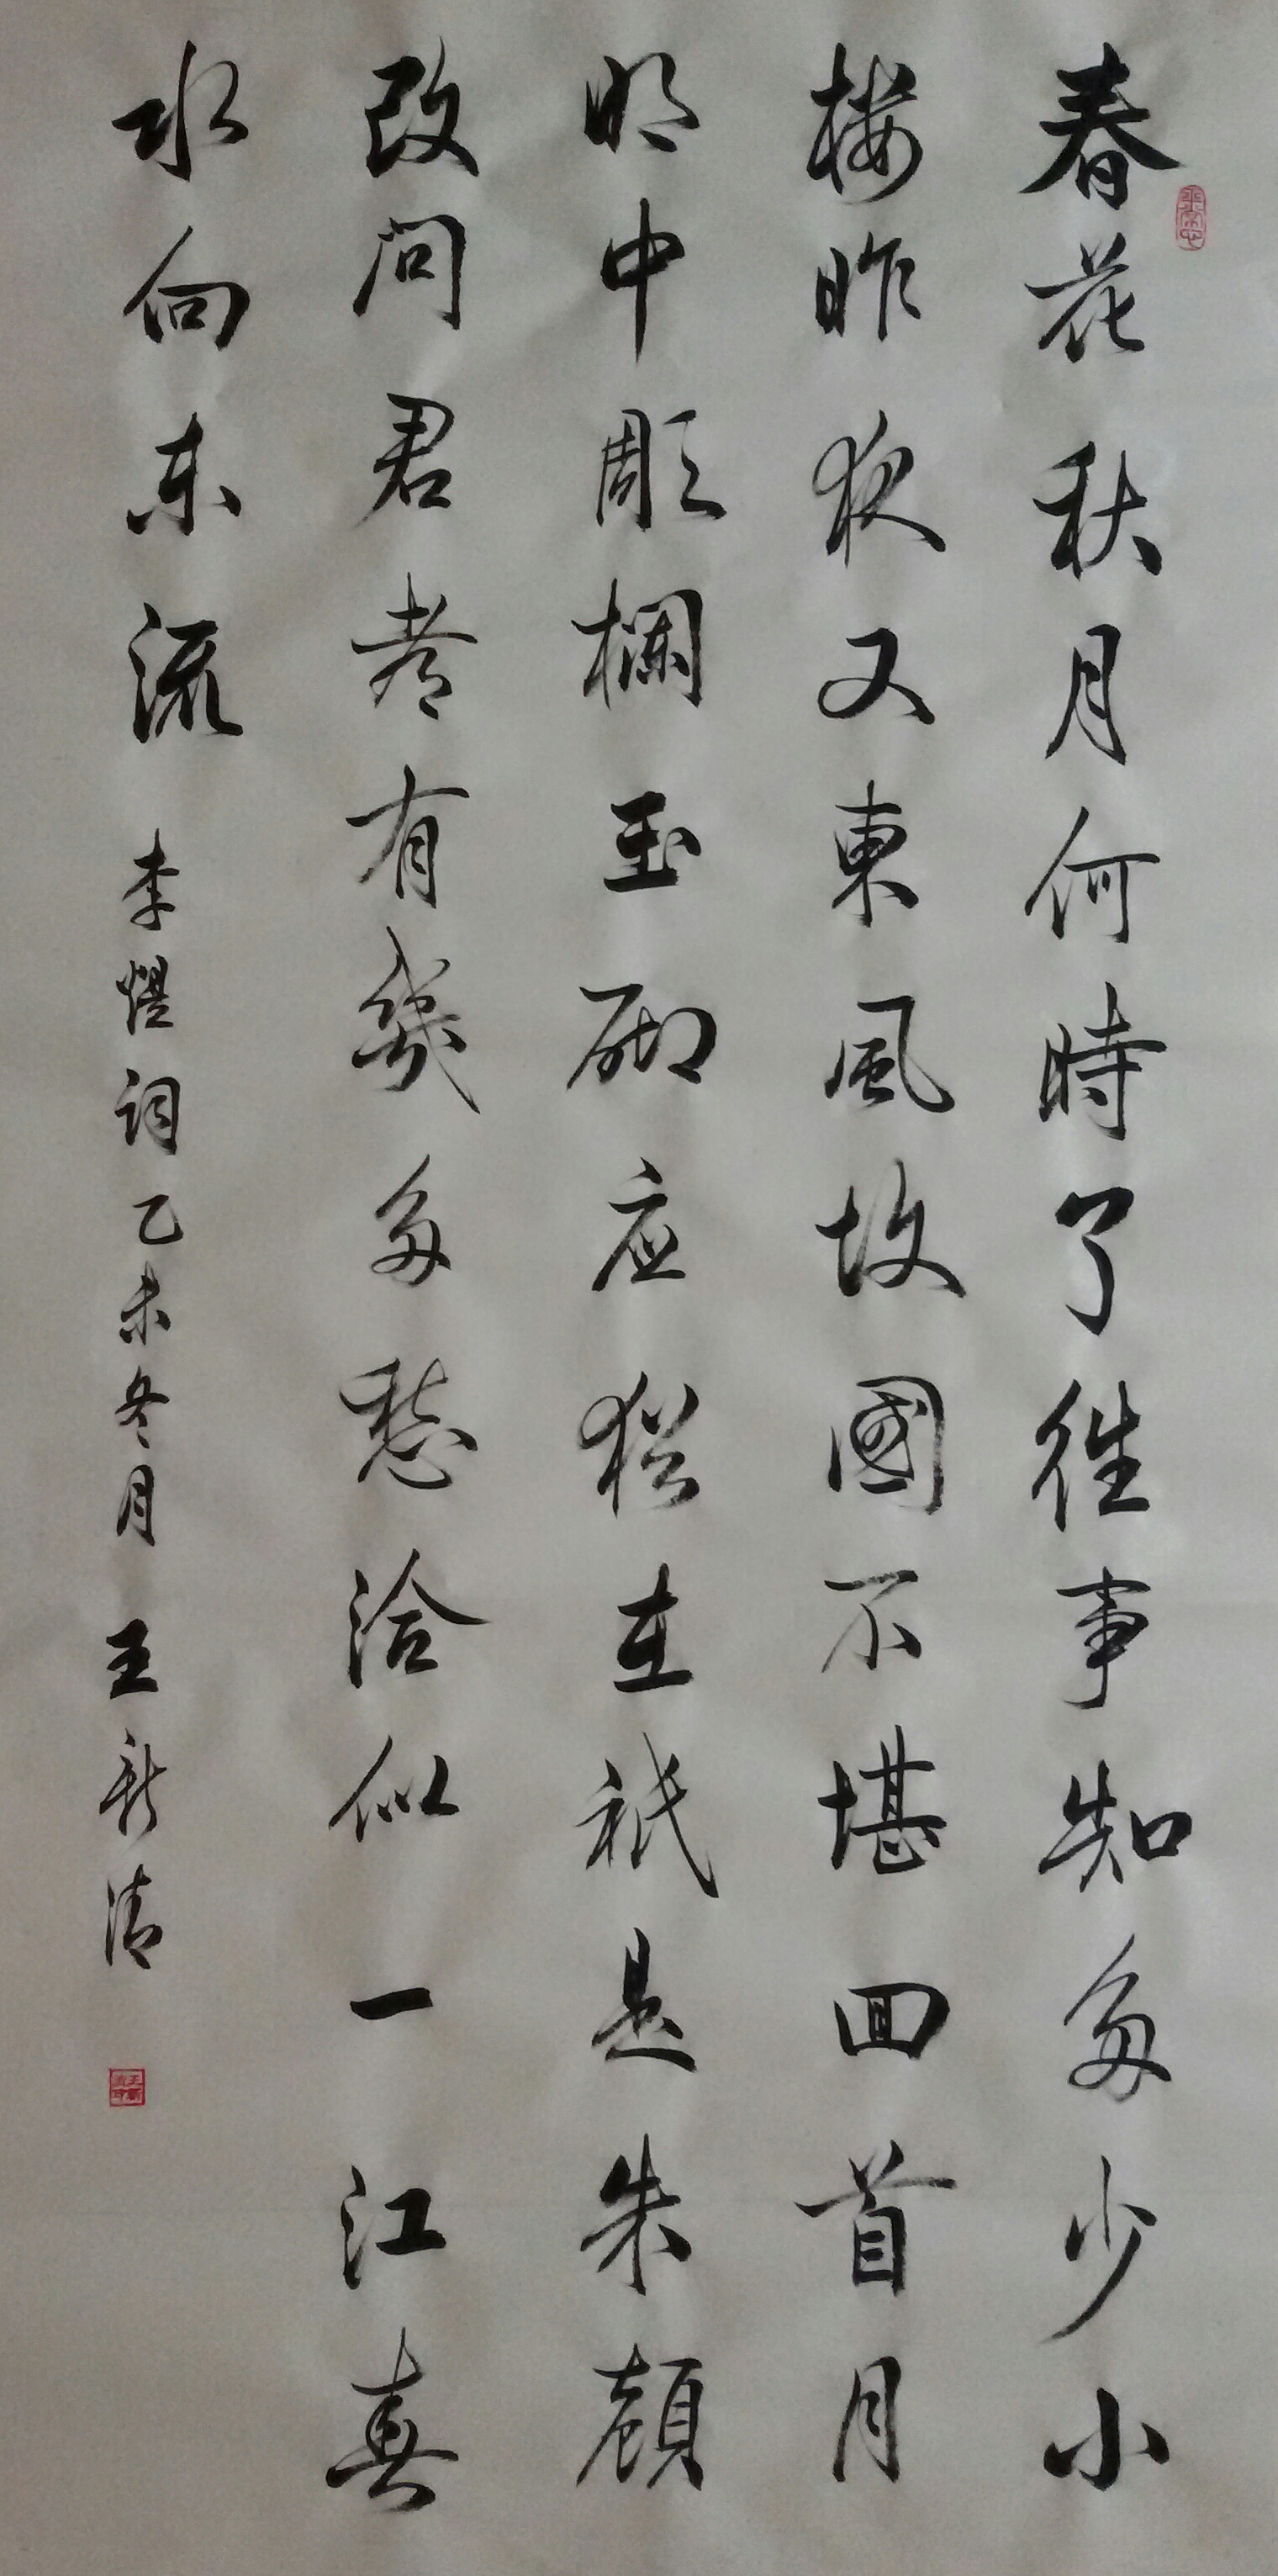 春花秋月何時了往事知多少小
楼昨夜又東風故國不堪回首月
明中彫欄玉砌应猶在祇是朱顔
改問君有幾多愁洽似一江春
水向东流 李煜詞乙未冬月 王新清
平常心